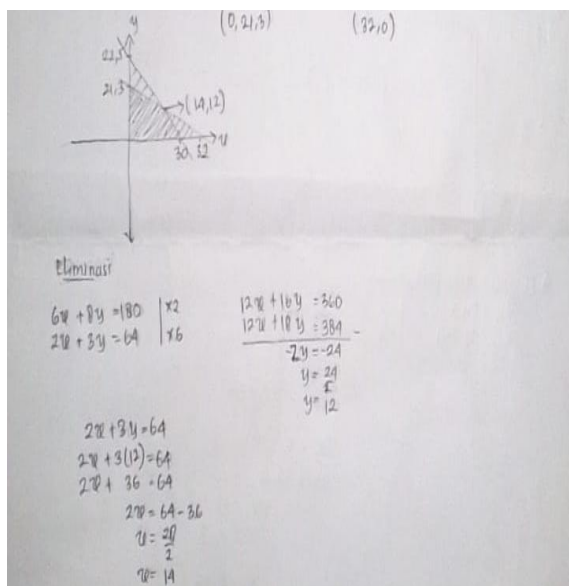 y
(0,21,3) (32,0)
22,5
21,3
(14,12)
30 32 x
Eliminasi
6x + 8y = 180 | x2
2x + 3y = 64 | x6
12x + 16y = 360
12x + 18y = 384 -
-2y = -24
y = 24
2
y = 12
2x + 3y = 64
2x + 3(12) = 64
2x + 36 = 64
2x = 64 - 36
x = 28
2
x = 14